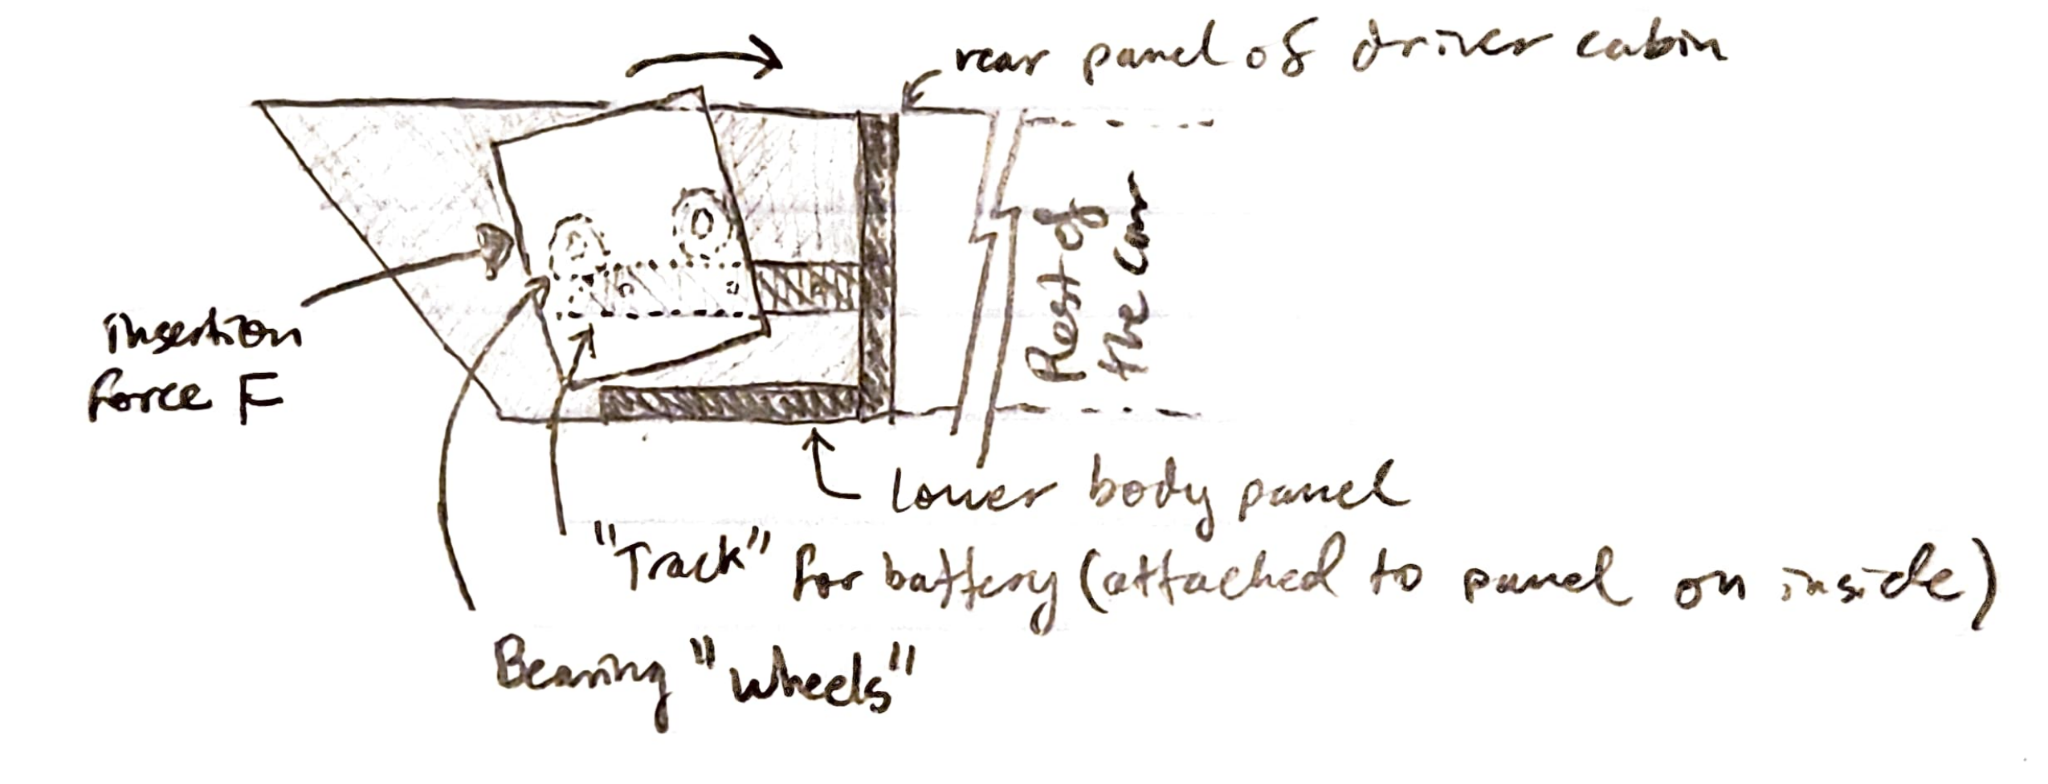 rear panel of driver cabin
insertion
force F
Rest of
the car
lower body panel
"Track" for battery (attached to panel on inside)
Bearing "wheels"